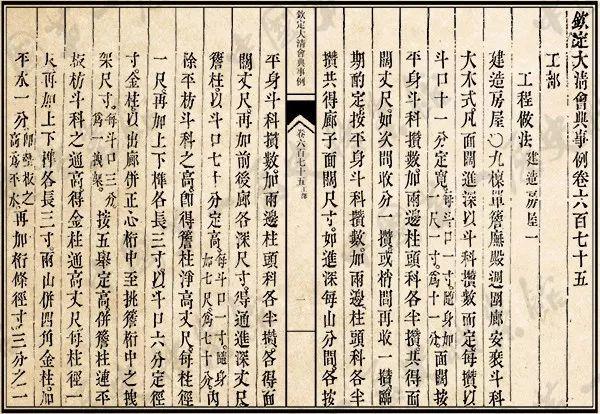 欽定大清會典事例卷六百七十五
工部
工程做法 建造房屋一
建造房屋〇九檁單簷廡殿週圍廊安裝斗科
大木式凡面闊進深以斗科攢數而定每攢以
斗口十一分定寬每斗口一寸。隨身加一尺一寸。爲十一分。面闊按
平身斗科攢數加兩邊柱頭科各半攢共得面
闊丈尺如次間收分一攢或梢間再收一攢臨
期酌定按平身斗科攢數加兩邊柱頭科各半
攢共得廊子面闊尺寸。如進深每山分間各按
欽定大清會典事例 卷六百七十五 工部 一
平身斗科攢數加兩邊柱頭科各半攢各得面
闊丈尺再加前後廊各深尺寸。得通進深丈尺
簷柱以斗口七十分定高。每斗口一寸。隨身加七尺爲七十分。內
除平枋斗科之高卽得簷柱淨高丈尺每柱徑
一尺再加上下榫各長三寸以斗口六分定徑
寸金柱以出廊併正心桁中至挑簷桁中之拽
架尺寸。每斗口三分。爲一拽架。按五舉定高併簷柱連平
板枋斗科之通高得金柱通高丈尺每柱徑一
尺再加上下榫各長三寸兩山併四角金柱加
平水一分高卽墊板之高爲平水。再加桁條徑寸三分之一